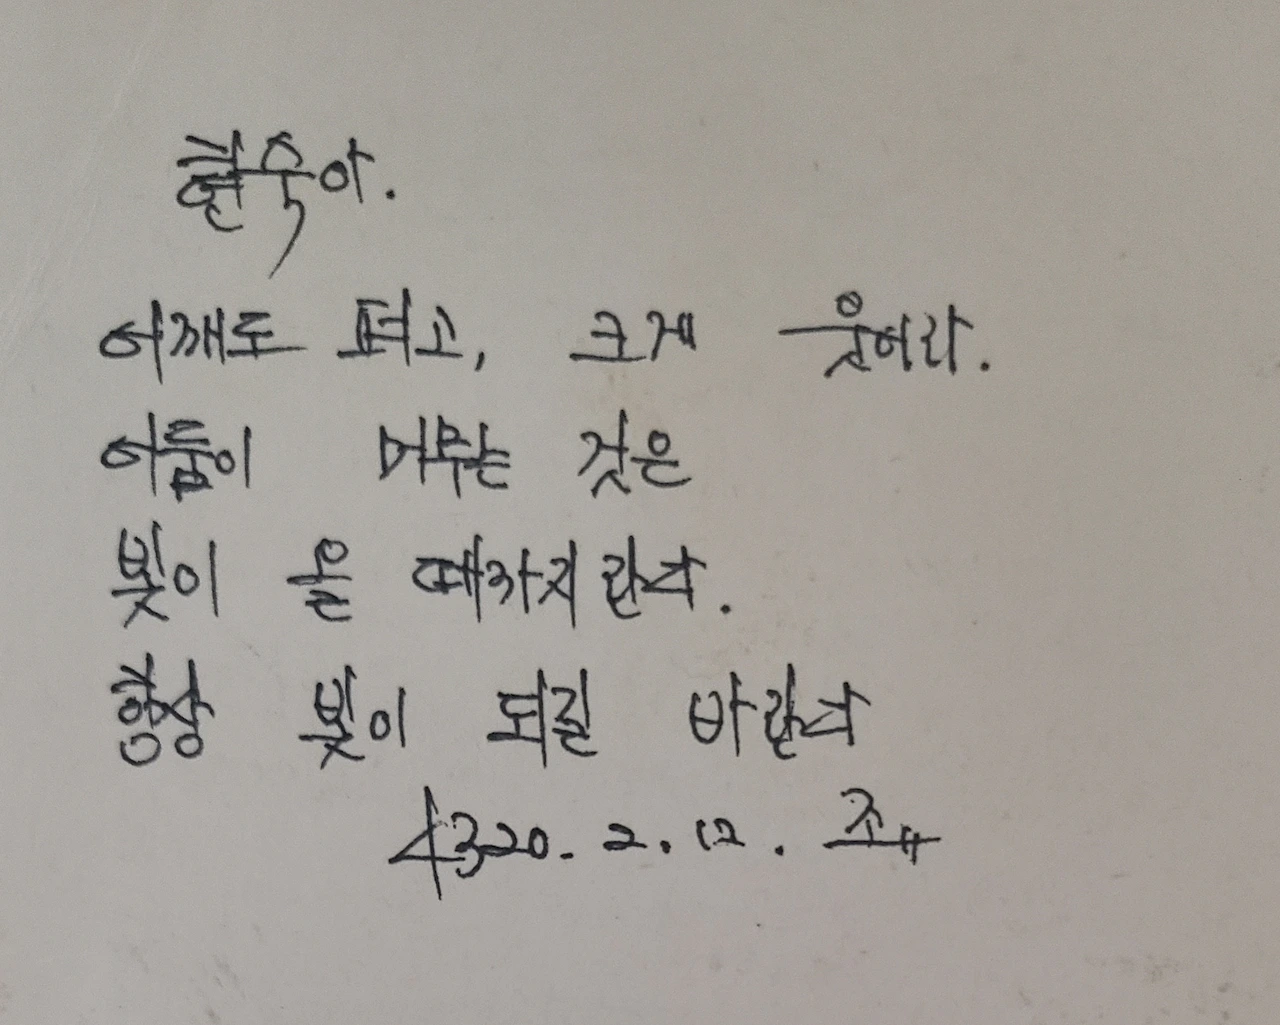 현욱아.
어깨도 펴고, 크게 웃어라.
어둠이 머무는 것은
빛이 올 때까지란다.
항상 빛이 되길 바란다
4320. 2. 12.